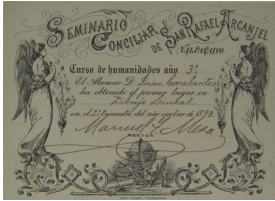 SEMINARIO
CONCILIAR DE SAN RAFAEL ARCANJEL
VALPARAISO.
Curso de humanidades año 3º
El Alumno D. Juan
ha obtenido el primer lugar en
Dibujo Lineal
en el 2º trimestre del año escolar de 1893.
Manuel Mesa
RECTOR